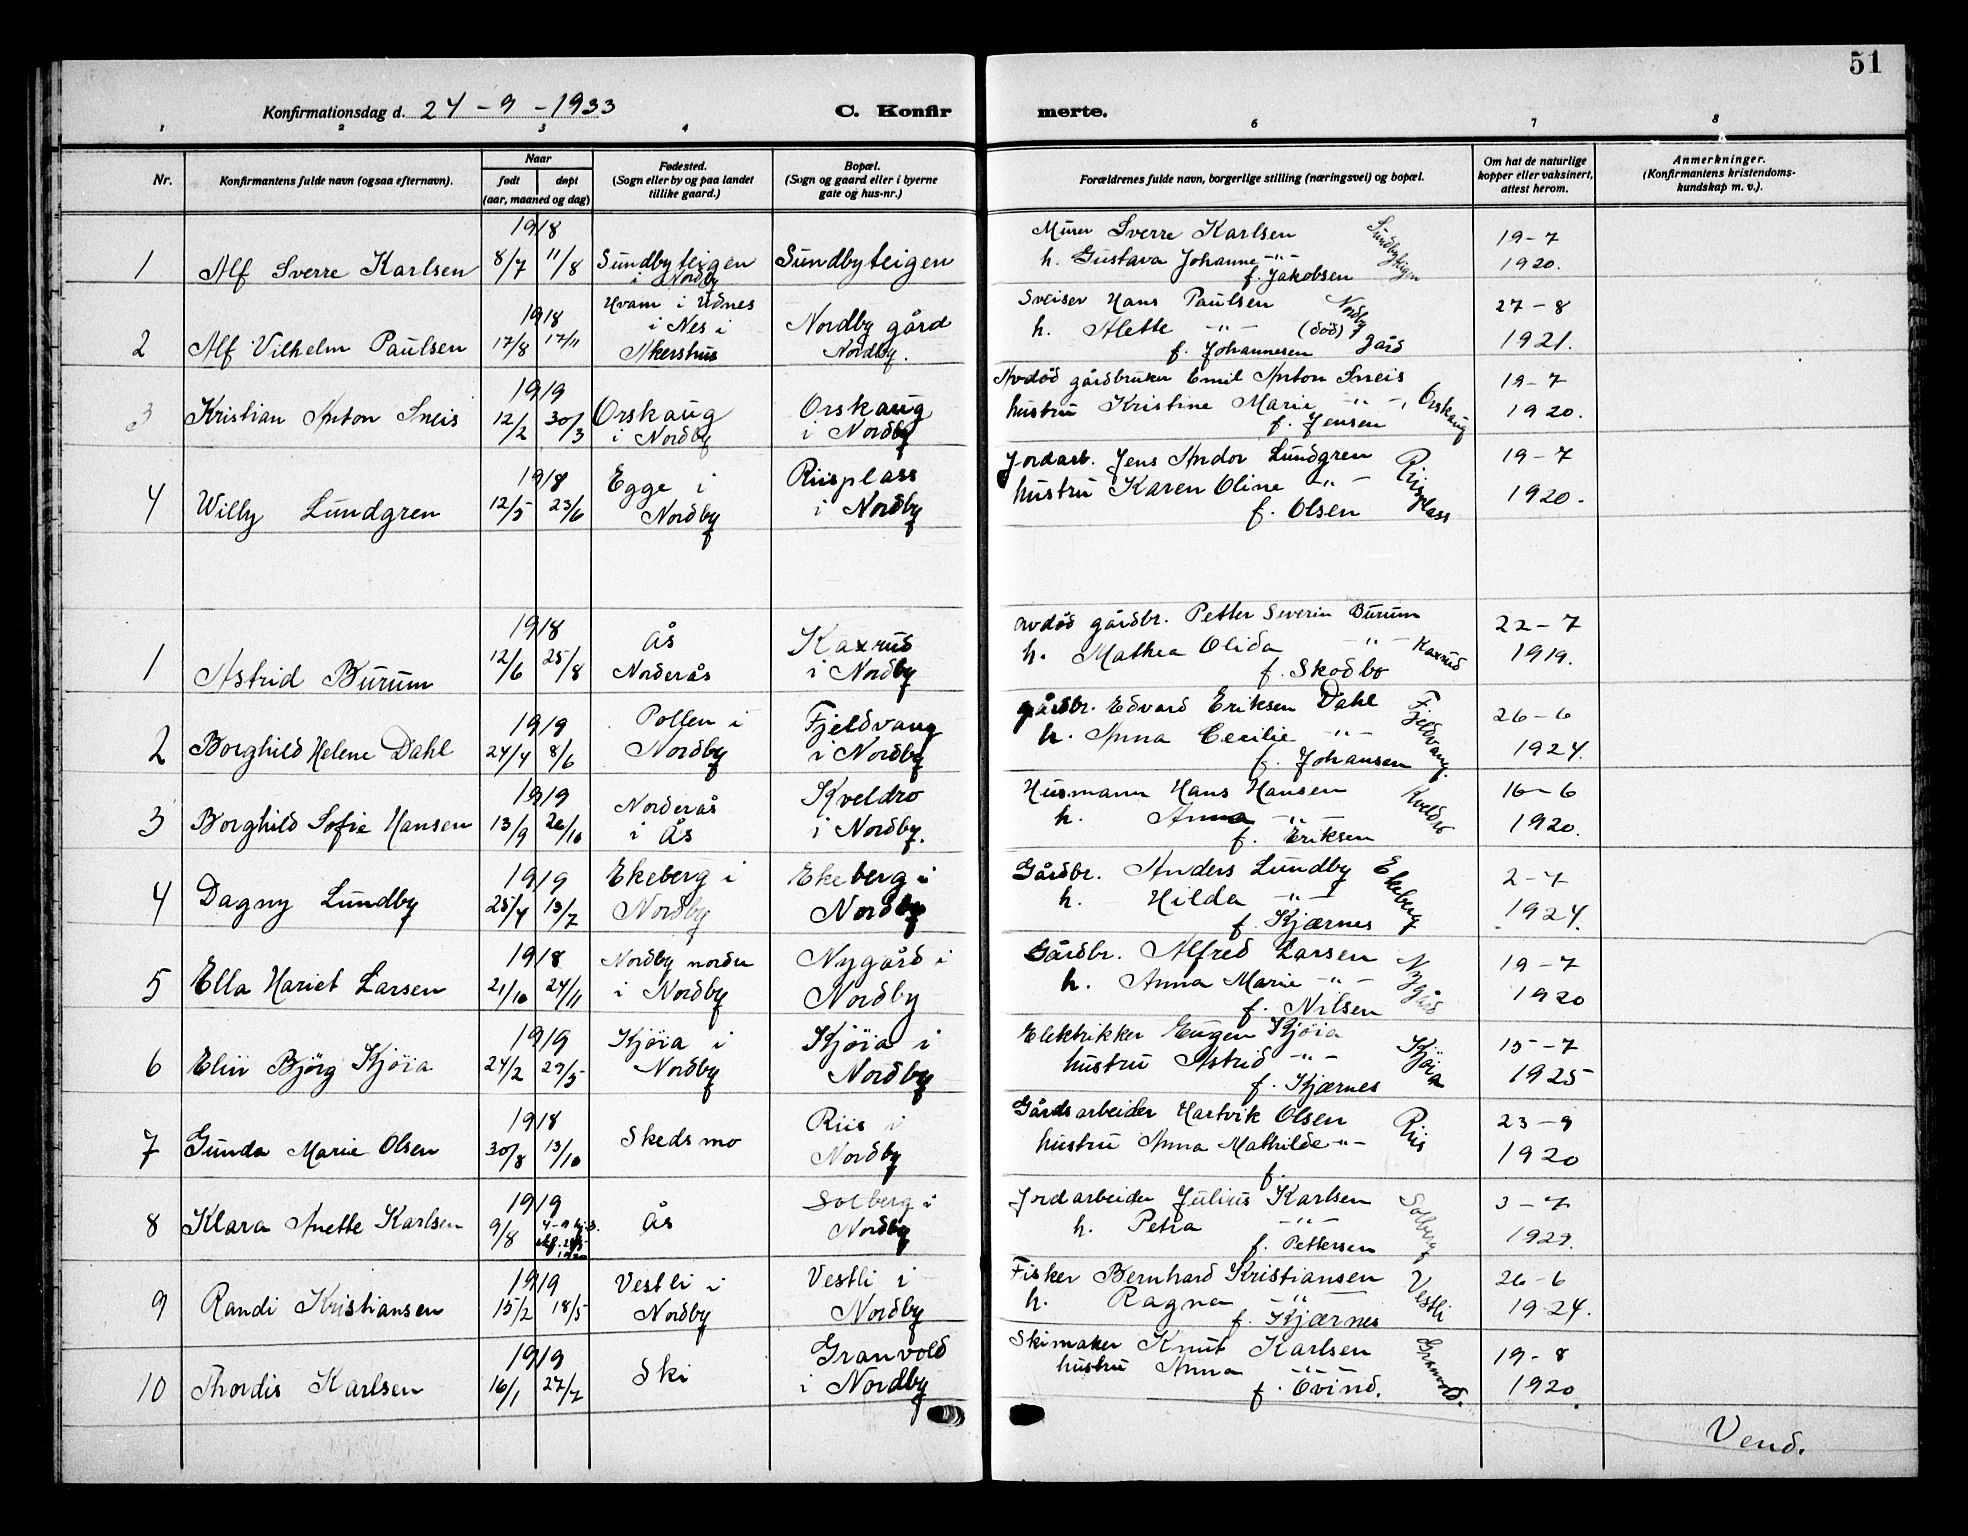 51
Konfirmationsdag d. 24 - 9 - 1933 C. Konfirmerte.
1 2 3 4 6 7 8
Nr. Konfirmantens fulde navn (ogsaa efternavn). Naar født døpt (aar, maaned og dag) Fødested. (Sogn eller by og paa landet tillike gaard.) Bopæl. (Sogn og gaard eller i byerne gate og hus-nr.) Forældrenes fulde navn, borgerlige stilling (næringsvei) og bopæl. Om hat de naturlige kopper eller vaksinert, attest herom. Anmerkninger. (Konfirmantens kristendoms-kundskap m. v.).
1 Alf Sverre Karlsen 1918 8/7 11/8 Sundbyteigen i Nordby Sundbyteigen Murer Sverre Karlsen h. Gustava Johanne -"- f. Jakobsen Sundbyteigen 19-7 1920.
2 Alf Vilhelm Paulsen 1918 17/8 17/11 Hvam i Udnes i Nes i Akershus Nordby gård Nordby. Sveiser Hans Paulsen h. Alette -"- (død) f. Johannesen Nordby gård 27-8 1921.
3 Kristian Anton Sneis 1919 12/2 30/3 Orskaug i Nordby Orskaug i Nordby Avdød gårdbruker Emil Anton Sneis hustru Kristine Marie -"-, f. Jensen Orskaug 19-7 1920.
4 Willy Lundgren 1918 12/5 23/6 Egge i Nordby Riisplass i Nordby Jordarb. Jens Andor Lundgren hustru Karen Oline -"- f. Olsen Riisplass 19-7 1920.
1 Astrid Burum 1918 12/6 25/8 Ås Norderås Kaxrud i Nordby Avdød gårdbr. Petter Severin Burum h. Mathea Olida -"- f. Skodbo Kaxrud 22-7 1919.
2 Borghild Helene Dahl 1919 24/4 8/6 Pollen i Nordby Fjeldvang i Nordby gårdbr. Edvard Eriksen Dahl h. Anna Cecilie -"- f. Johansen Fjeldvang. 26-6 1924.
3 Borghild Sofie Hansen 1919 13/9 26/10 Norderås i Ås Kveldro i Nordby. Husmann Hans Hansen h. Anna -"- f. Eriksen Kveldro 16-6 1920.
4 Dagny Lundby 1919 25/4 13/7 Ekeberg i Nordby Ekeberg i Nordby Gårdbr. Anders Lundby h. Hilda -"- f. Kjærnes Ekeberg 2-7 1924.
5 Ella Hariet Larsen 1918 21/10 24/11 Nordby nordre i Nordby Nygård i Nordby Gårdbr. Alfred Larsen h. Anna Marie -"- f. Nilsen Nygård 19-7 1920
6 Elin Bjørg Kjöia 1919 24/2 29/5 Kjöia i Nordby Kjöia i Nordby Elektrikker Eugen Kjöia hustru Astrid -"- f. Kjærnes Kjöia 15-7 1925
7 Gunda Marie Olsen 1918 30/8 13/10 Skedsmo Riis i Nordby Gårdsarbeider Hartvik Olsen hustru Anna Mathilde -"- f. Riis 23-9 1920
8 Klara Anette Karlsen 1919 9/8 Ås Solberg i Nordby Jordarbeider Julius Karlsen h. Petra -"- f. Pettersen Solberg 3-7 1929.
9 Randi Kristiansen 1919 15/2 18/5 Vestli i Nordby Vestli i Nordby Fisker Bernhard Kristiansen h. Ragna -"- f. Kjærnes Vestli 26-6 1924.
10 Thordis Karlsen 1919 16/1 27/7 Ski Granvold i Nordby Skimaker Knut Karlsen hustru Anna -"- f. Övind. Granvold. 19-8 1920.
Vend.